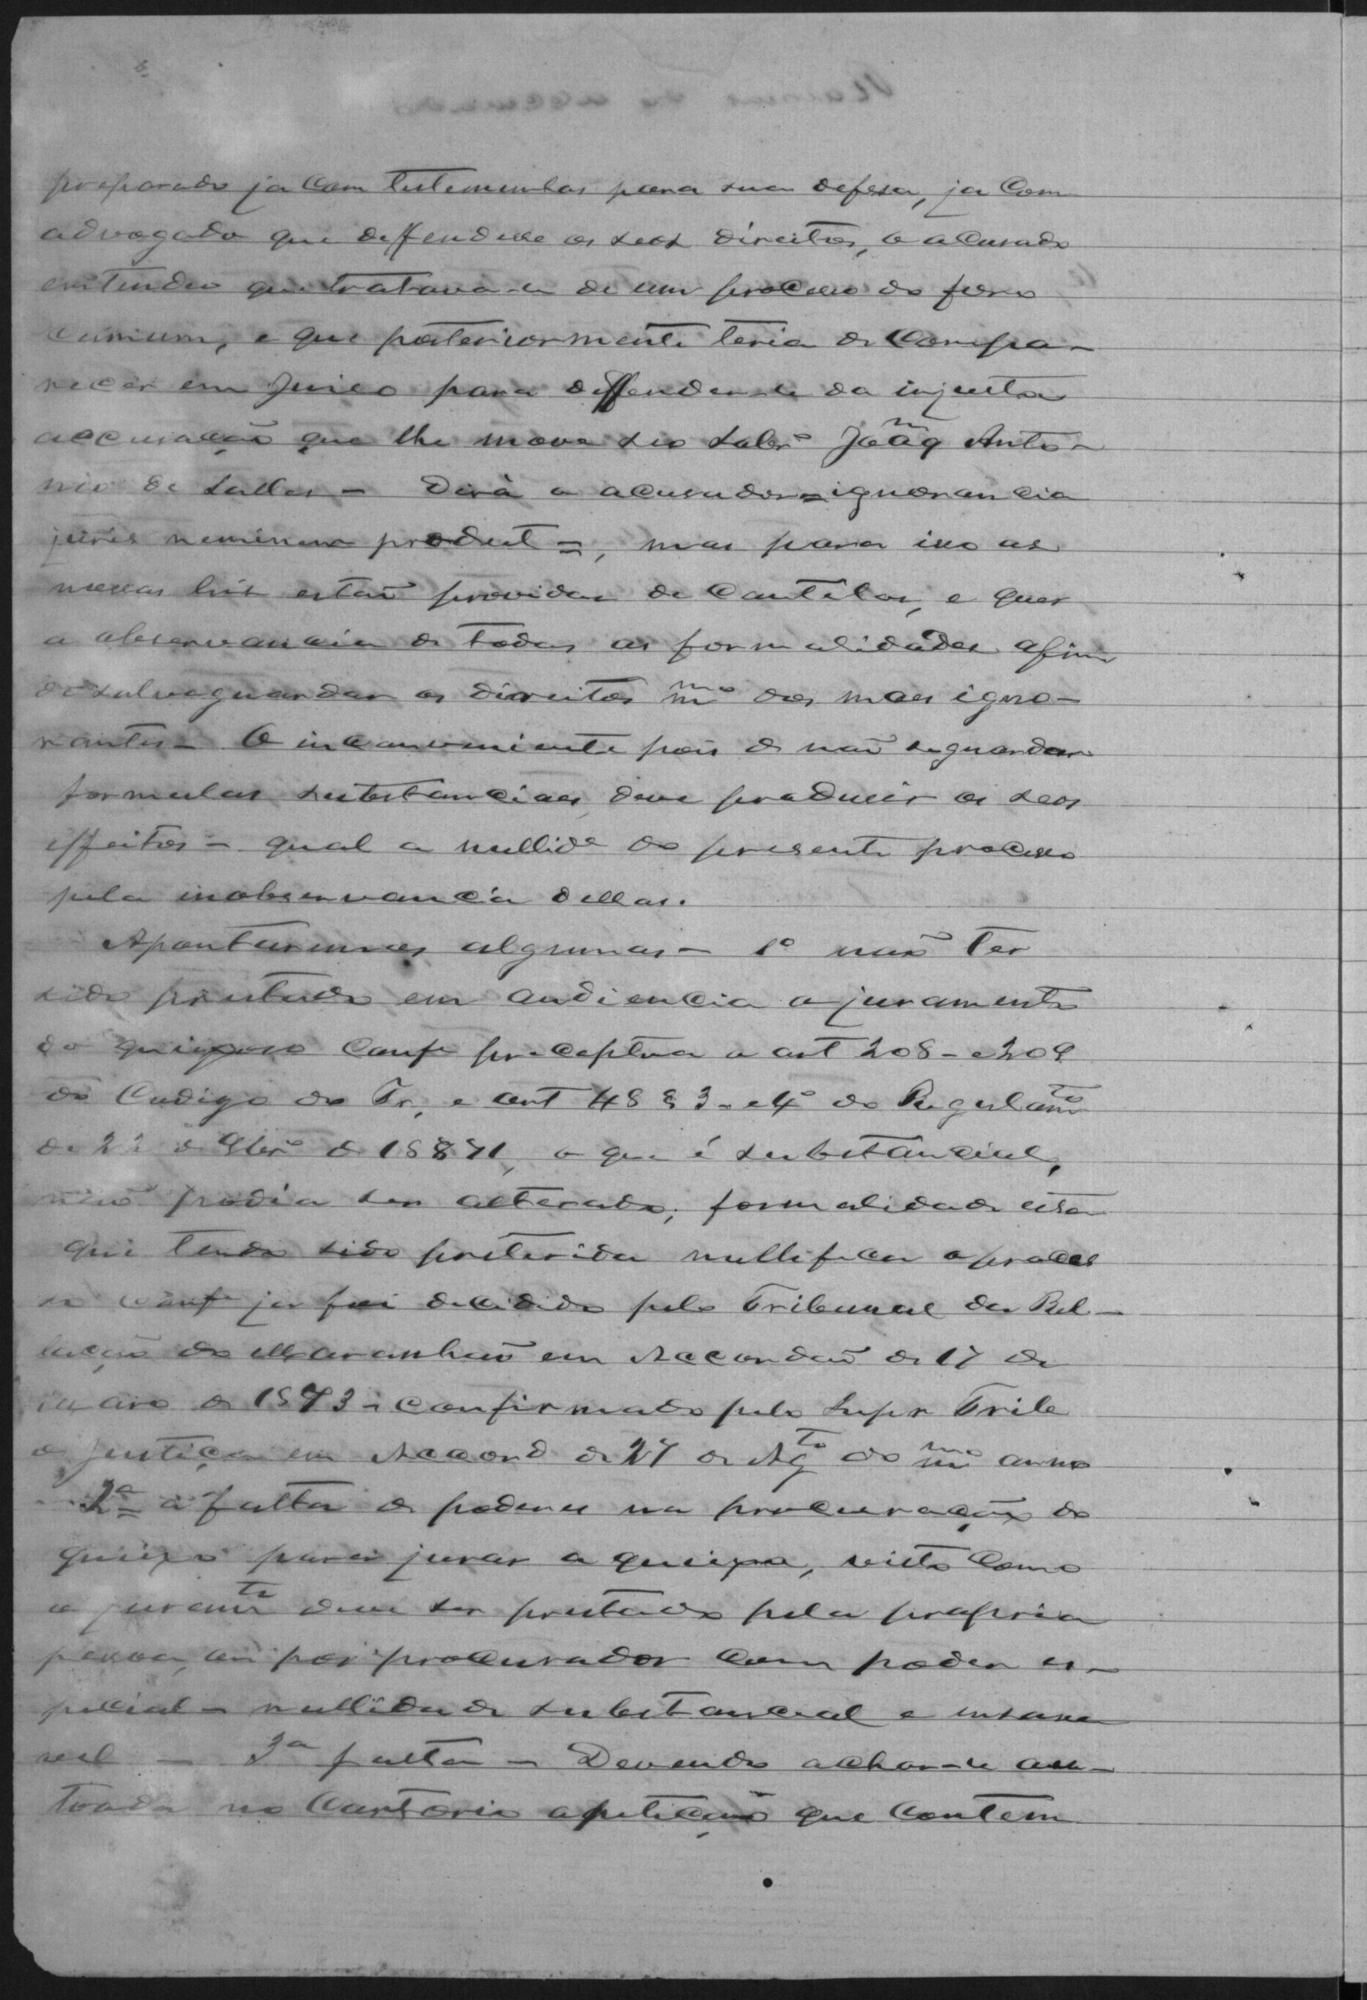 preparado ja com testemunhas para sua defesa, ja com
advogado que deffendesse os seos direitos, o acusado
entendeo que tratava-se de um processo do foro
cumum, e que posteriormente teria de compa-
recer em Juiso para deffender-se da injusta
accusação que lhe move seo sobrº Joaqm Anto-
nio de Salles - Dirà o acusador = ignorancia
juris neminem prodest =, mas para isso as
nossas leis estaõ providas de cautelas, e quer
a observancia de todas as formalidades afim
de salvaguardar os direitos mmo dos mais igno-
rantes - O inconveniente pois de naõ se guardar
formulas substanciaes, deve produsir os seos
effeitos - qual a nullide do presente processo
pela inobservancia dellas.
Apontaremos algumas - 1º naõ ter
sido prestado em audiencia o juramento
do queixoso confe preceptua o art 208 - e 209
do Codigo do Pr, e art 48 § 3 - e 4º do Regulamto
de 22 de 9brº de 1871, o que é substancial,
naõ podia ser alterado; formalidade esta
que tendo sido preterida nullifica o proces
so confe ja foi decidido pelo Tribunal da Rel-
lação do Maranhaõ em Accordaõ de 17 de
de 1873 - confirmado pelo Supr Trib
de Justiça em Accord de 27 de Agto do mmo anno
2ª a falta de poderes na procuração do
queixo para jurar a queixa, visto como
o juramto deve ser prestado pela propria
pessoa, ou por procurador com poder es-
pecial - nullidade substancial e insana
vel - 3ª falta - Devendo achar-se au-
toada no Cartorio a petição que contem